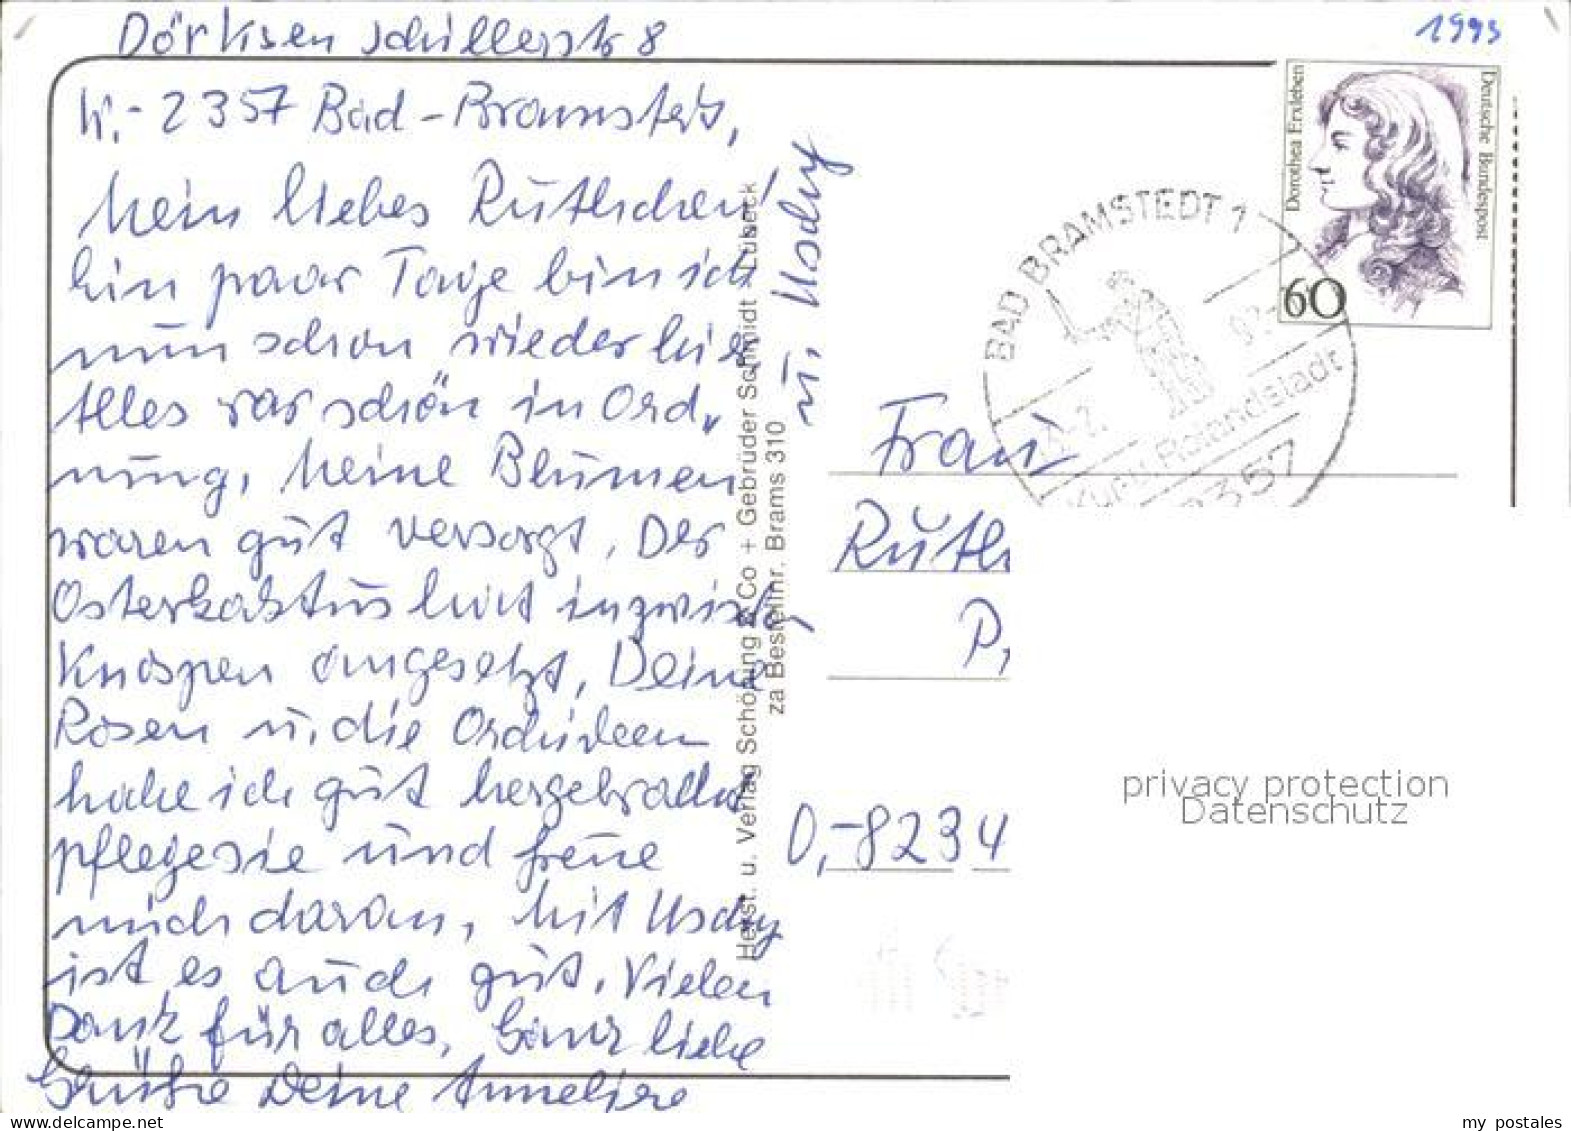 Dörksen Schillerstr 8
1993
W.-2357 Bad-Bramstedt,
Mein liebes Ruthchen!
Ein paar Tage bin ich
nun schon wieder hier.
Alles war schön in Ord-
nung, meine Blumen
waren gut versorgt. Der
Osterkaktus hat inzwischen
Knospen angesetzt, Deine
Rosen u. die Orchideen
habe ich gut hergebracht
pflege sie und freue
mich daran. Mit Uschy
ist es auch gut. Vielen
Dank für alles. Ganz liebe
Grüße Deine Anneliese
u. Uschy
Herst. u. Verlag Schöning & Co + Gebrüder Schmidt Lübeck
za Bestellnr. Brams 310
Dorothea Erxleben
Deutsche Bundespost
60
BAD BRAMSTEDT 1
Kur- u. Rolandstadt
2357
Frau
Ruth
P,
O,-8234
privacy protection
Datenschutz
my postales
www.delcampe.net